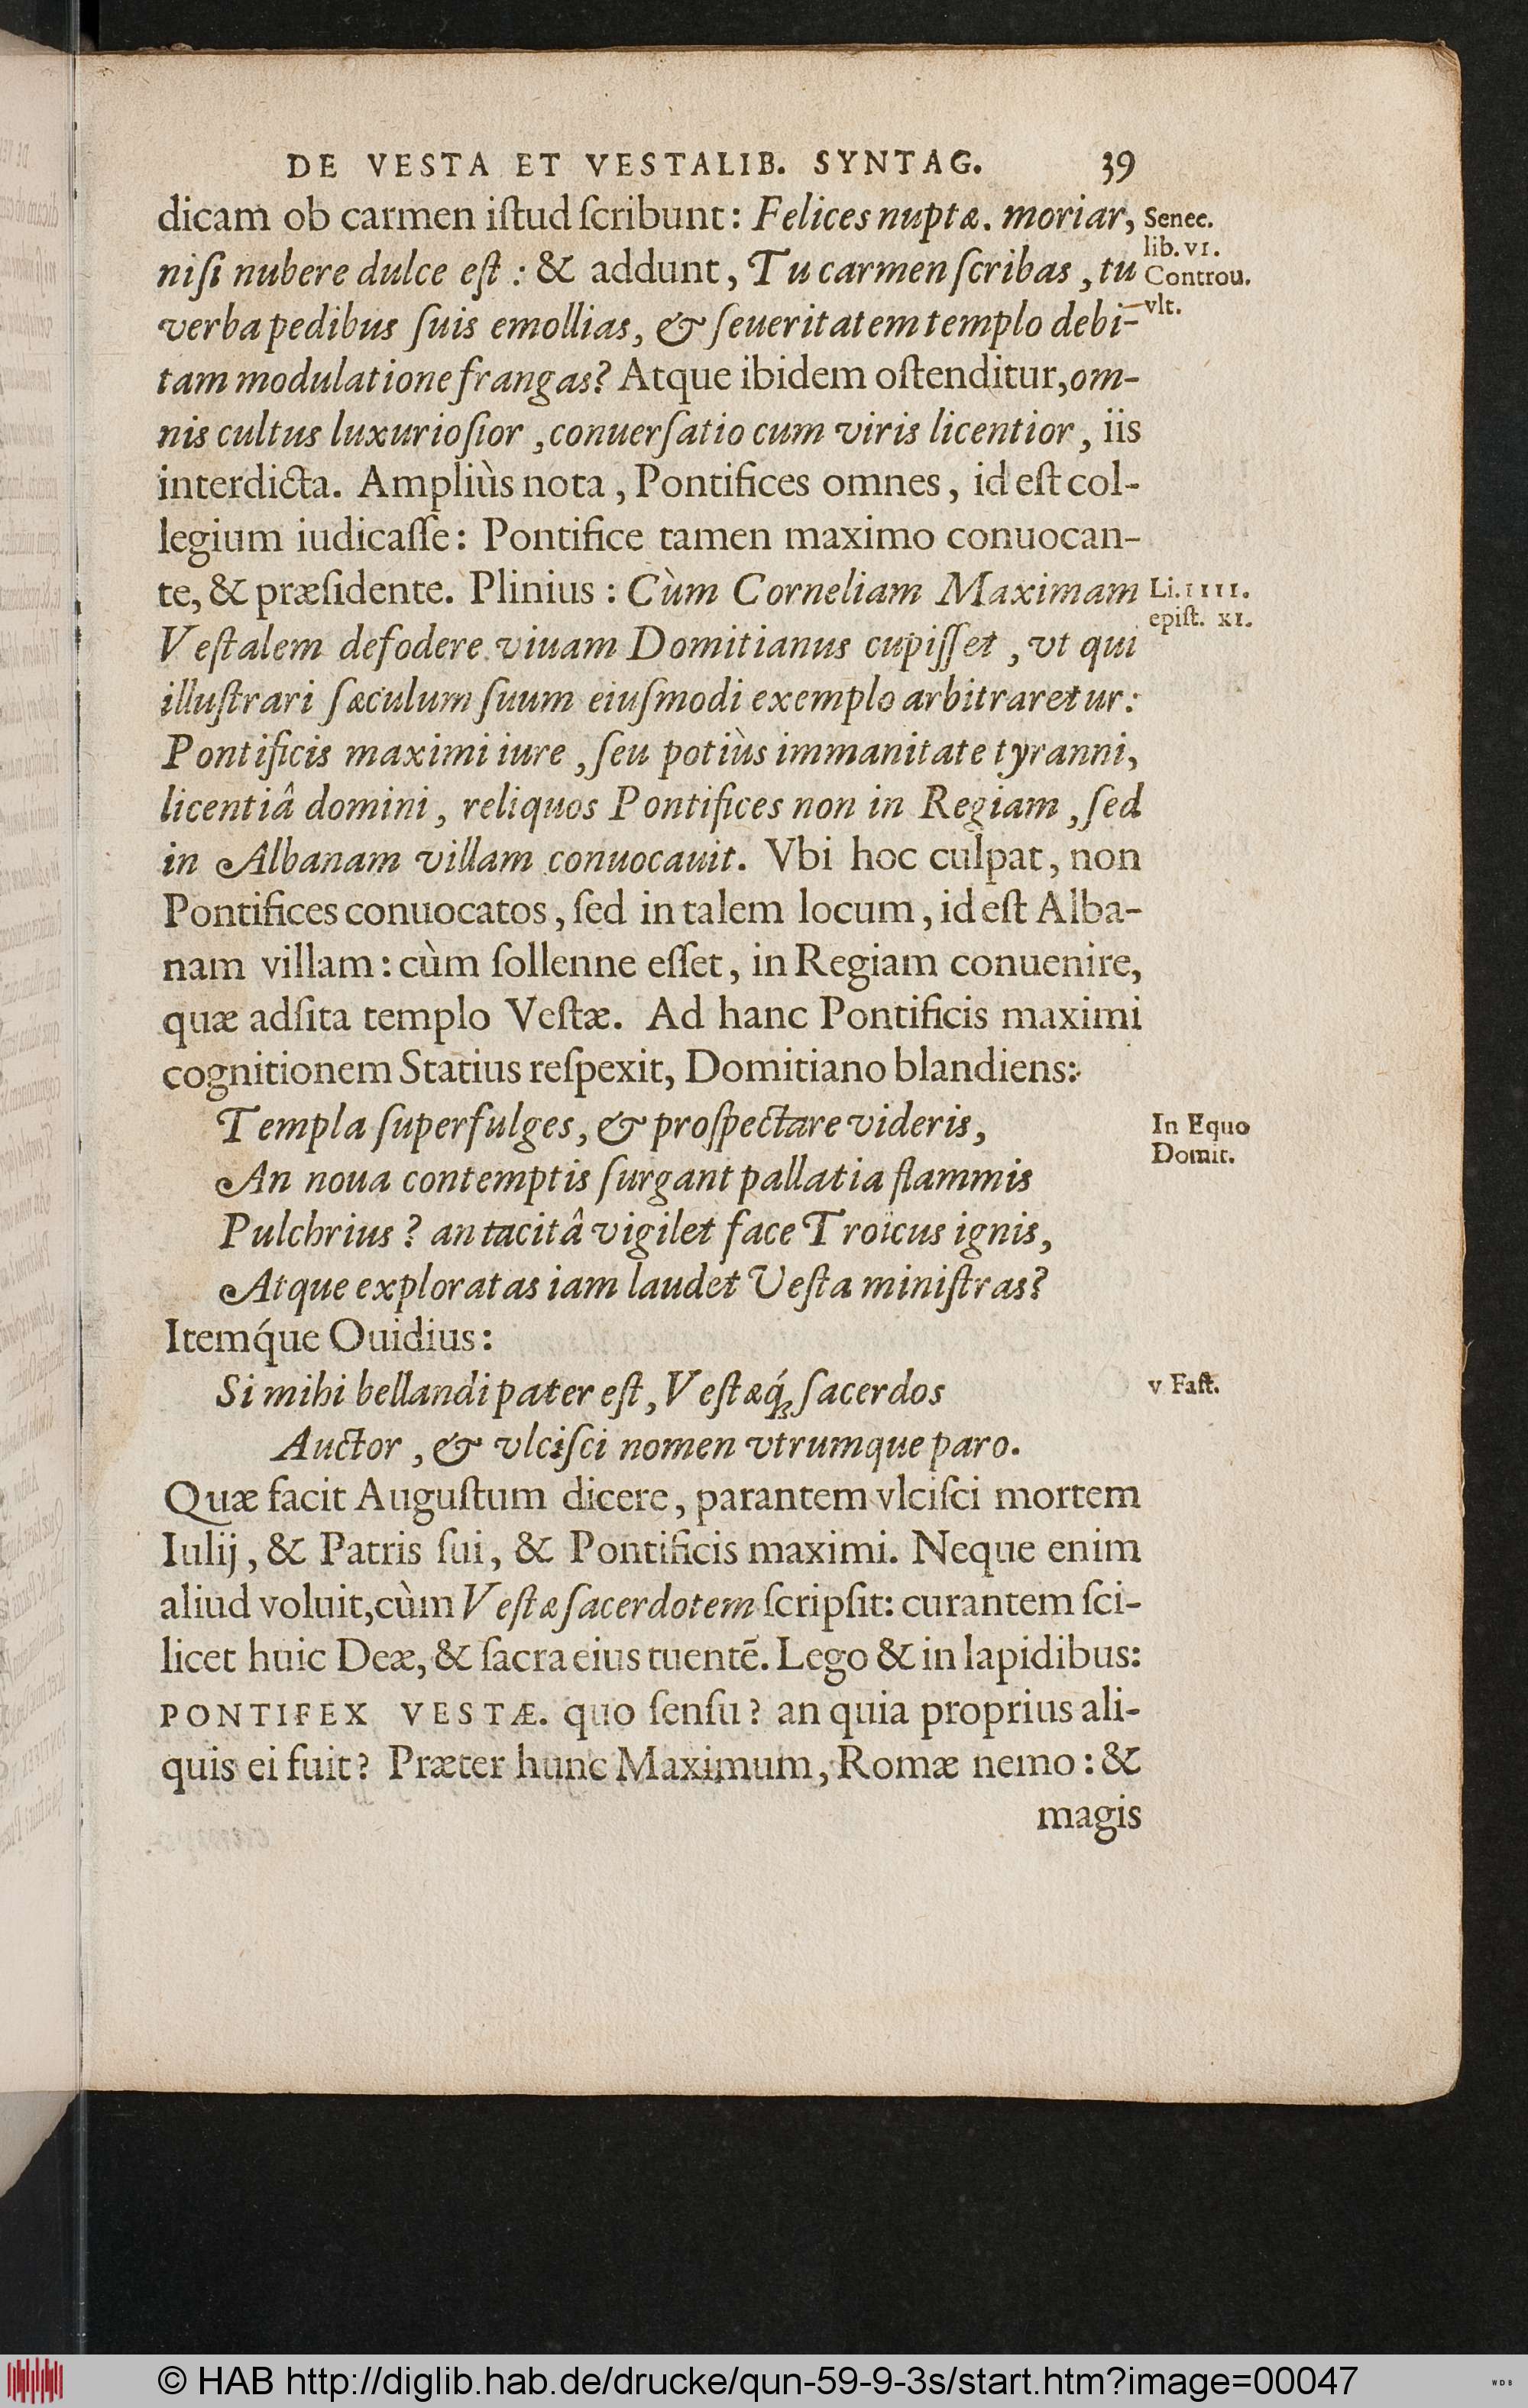 DE VESTA ET VESTALIB. SYNTAG. 39
dicam ob carmen iſtud ſcribunt: Felices nuptæ. moriar,
Senec.
niſi nubere dulce eſt: & addunt, Tu carmen ſcribas, tu
lib. VI.
Controu.
verba pedibus ſuis emollias, & ſeueritatem templo debi-
vlt.
tam modulatione frangas? Atque ibidem oſtenditur, om-
nis cultus luxurioſior, conuerſatio cum viris licentior, iis
interdicta. Ampliùs nota, Pontifices omnes, id eſt col-
legium iudicaſſe: Pontifice tamen maximo conuocan-
te, & præſidente. Plinius: Cùm Corneliam Maximam
Li. IIII.
epiſt. XI.
Veſtalem defodere viuam Domitianus cupiſſet, vt qui
illuſtrari ſæculum ſuum eiuſmodi exemplo arbitraretur:
Pontificis maximi iure, ſeu potiùs immanitate tyranni,
licentiâ domini, reliquos Pontifices non in Regiam, ſed
in Albanam villam conuocauit. Vbi hoc culpat, non
Pontifices conuocatos, ſed in talem locum, id eſt Alba-
nam villam: cùm ſollenne eſſet, in Regiam conuenire,
quæ adſita templo Veſtæ. Ad hanc Pontificis maximi
cognitionem Statius reſpexit, Domitiano blandiens:
Templa ſuperfulges, & proſpectare videris,
In Equo
Domit.
An noua contemptis ſurgant pallatia flammis
Pulchrius? an tacitâ vigilet face Troïcus ignis,
Atque exploratas iam laudet Veſta miniſtras?
Itemq́ue Ouidius:
Si mihi bellandi pater eſt, Veſtæq́; ſacerdos
v Faſt.
Auctor, & vlciſci nomen vtrumque paro.
Quæ facit Auguſtum dicere, parantem vlciſci mortem
Iulij, & Patris ſui, & Pontificis maximi. Neque enim
aliud voluit, cùm Veſtæ ſacerdotem ſcripſit: curantem ſci-
licet huic Deæ, & ſacra eius tuentē. Lego & in lapidibus:
PONTIFEX VESTÆ. quo ſenſu? an quia proprius ali-
quis ei fuit? Præter hunc Maximum, Romæ nemo: &
magis
© HAB http://diglib.hab.de/drucke/qun-59-9-3s/start.htm?image=00047